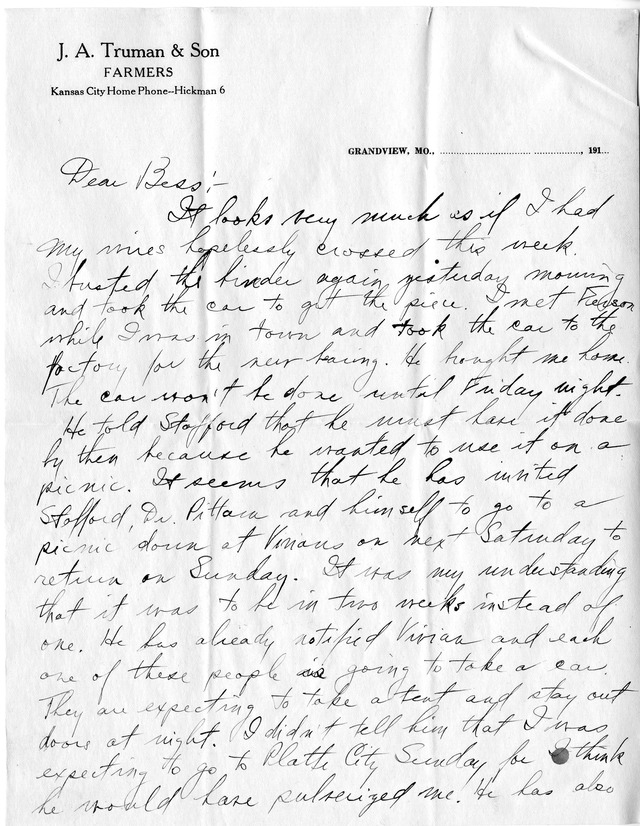 J. A. Truman & Son
FARMERS
Kansas City Home Phone--Hickman 6
GRANDVIEW, MO., ........................................, 191...
Dear Bess:-
It looks very much as if I had
my wires hopelessly crossed this week.
I busted the binder again yesterday morning
and took the car to get the piece. I met
while I was in town and took the car to the
factory for the new bearing. He brought me home.
The car won't be done until Friday night.
He told Stafford that he must have it done
by then because he wanted to use it on a
picnic. It seems that he has invited
Stafford, Dr. and himself to go to a
picnic down at Vivians on next Saturday to
return on Sunday. It was my understanding
that it was to be in two weeks instead of
one. He has already notified Vivian and each
one of these people is going to take a car.
They are expecting to take a tent and stay out
doors at night. I didn't tell him that I was
expecting to go to Platte City Sunday for I think
he would have pulverized me. He has also